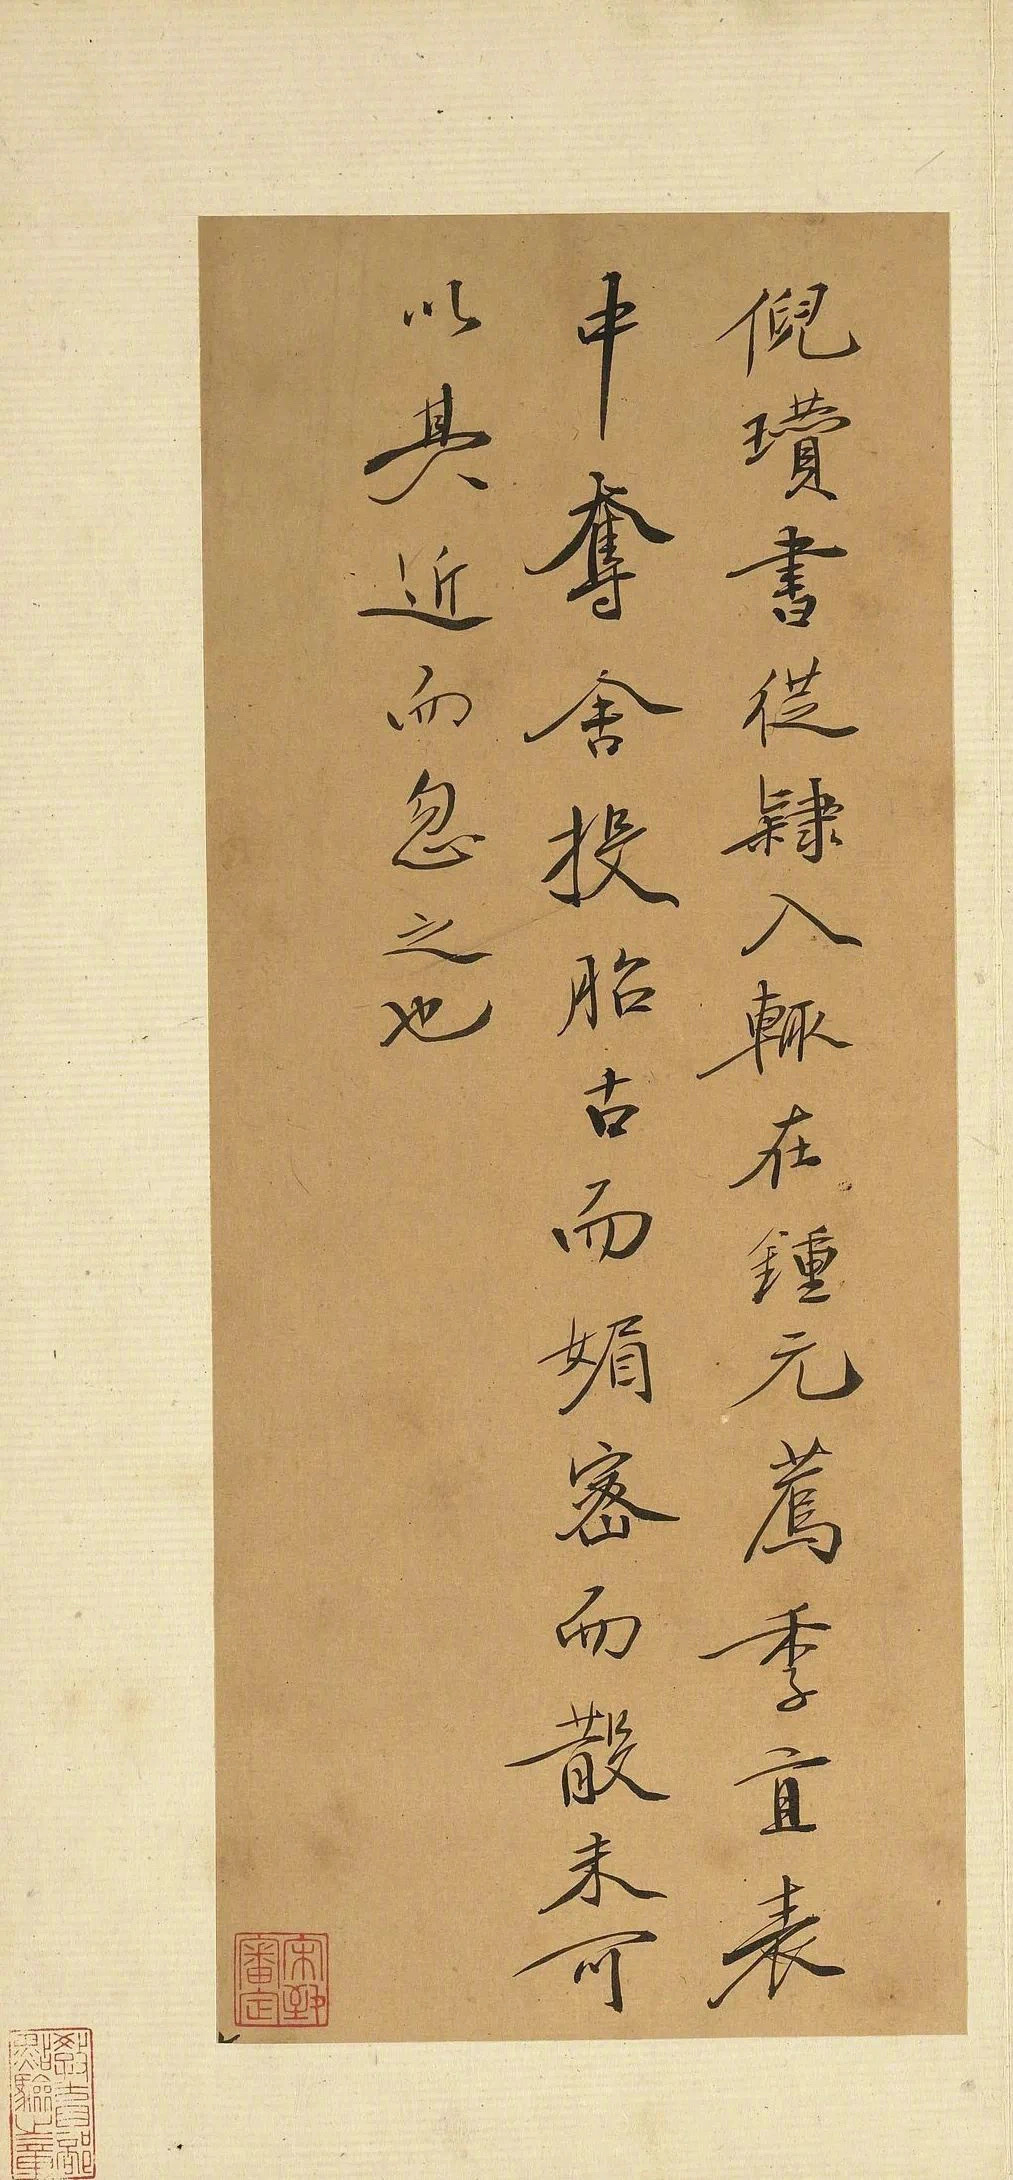 倪瓚書從隸入輒在鍾元薦季直表
中奪舍投胎古而媚密而散未可
以其近而忽之也
宋犖審定
教育部點驗之章